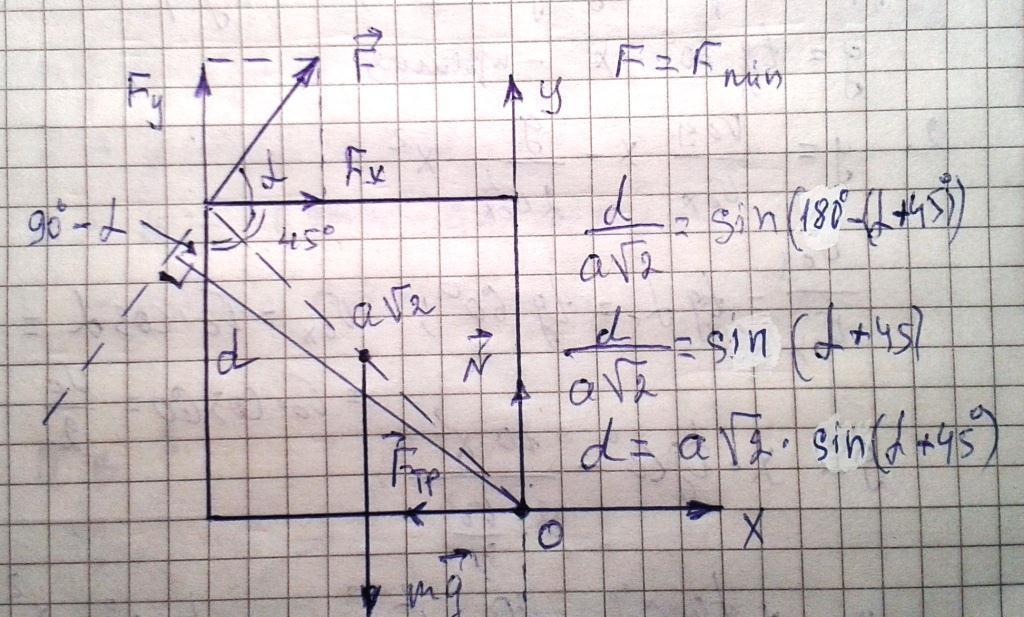 F⃗
F = Fmin
Fy
y
α
Fx
90°-α
45°
d/a√2 = sin(180°-(α+45°))
a√2
d
N⃗
d/a√2 = sin(α+45)
F⃗тр
d = a√2 · sin(α+45°)
O
X
mg⃗